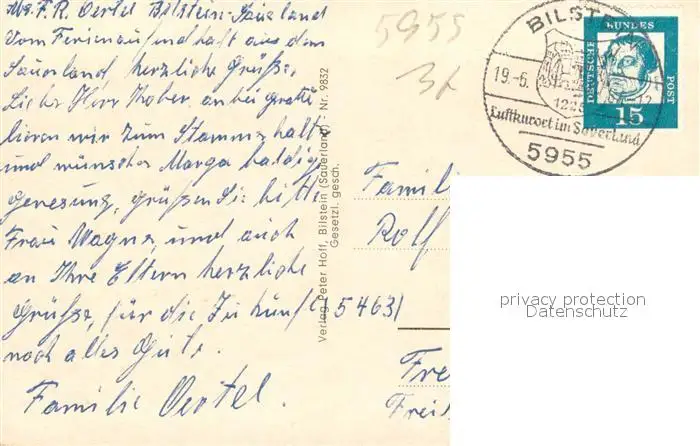 Abs. F. R. Oertel Bilstein-Sauerland
Vom Ferienaufenthalt aus dem
Sauerland, herzliche Grüße,
Lieber Herr anbei gratu
lieren wir zum Stammhalter
und wünschen Marga baldige
Genesung, Grüßen Sie bitte
Frau Wagner, und auch
an Ihre Eltern herzliche
Grüße, für die Zukunft
noch alles Gute.
Familie Oertel.
Verlag Peter Hoff, Bilstein (Sauerland) - Nr. 9832
Gesetzl. gesch.
5955
BILSTE
19.-6.
Luftkurort im Sauerland
5955
DEUTSCHE
BUNDES
POST
15
Famili
Rolf
(5463)
Fre
Frei
privacy protection
Datenschutz